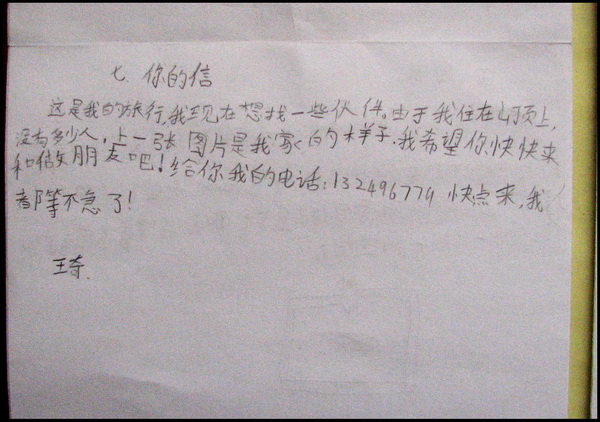 七. 你的信
这是我的旅行,我现在想找一些伙伴。由于我住在山顶上,
没有多少人,上一张图片是我家的样子.我希望你快快来
和做朋友吧!给你我的电话:132496779 快点来,我
都等不急了!
王奇.